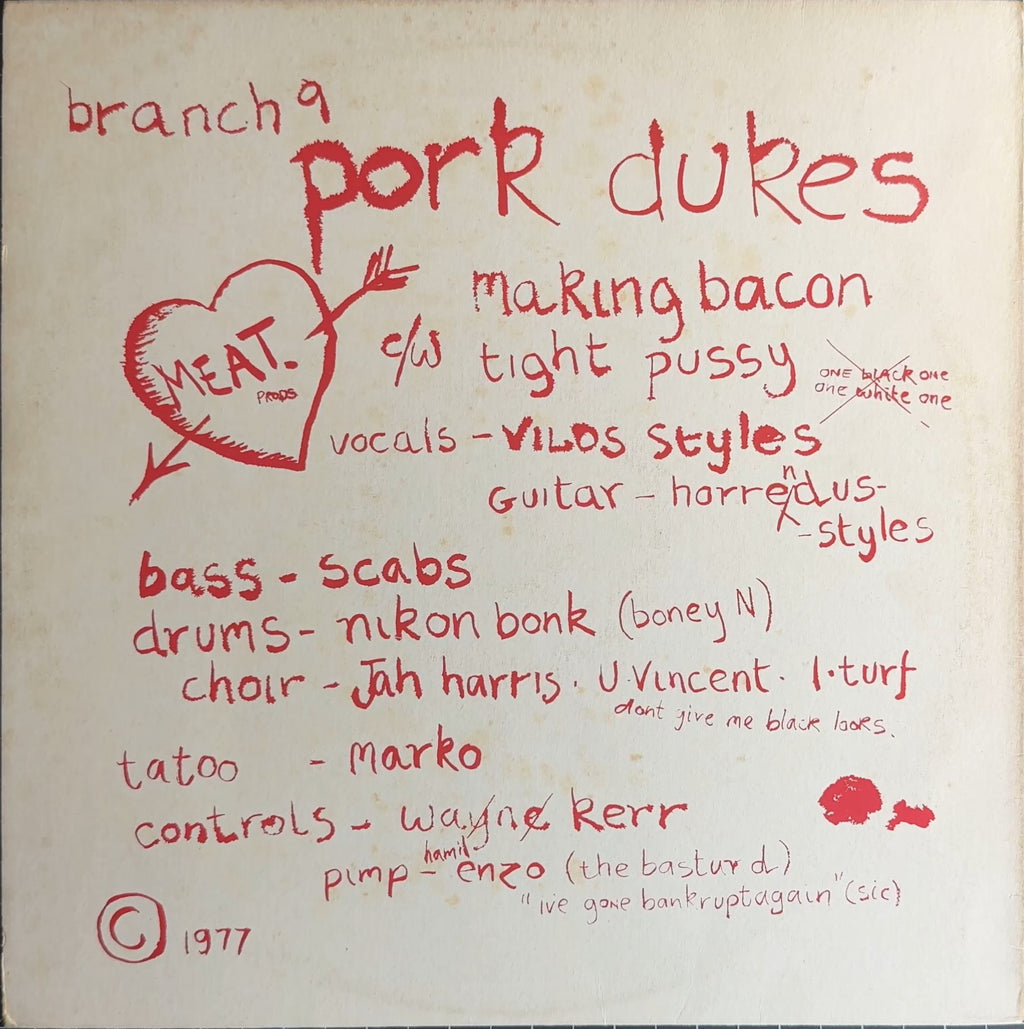 branch 9
pork dukes
making bacon
MEAT.
PRODS
c/w tight pussy
ONE blACK ONE
one white one
vocals - VILOS styles
Guitar - horrendus-
-styles
bass - scabs
drums - nikon bonk (boney N)
choir - Jah harris. U.Vincent. I.turf
dont give me black looks.
tatoo - Marko
controls - wayne kerr
pimp - hamil enzo (the bastur d)
"ive gone bankruptagain" (sic)
© 1977